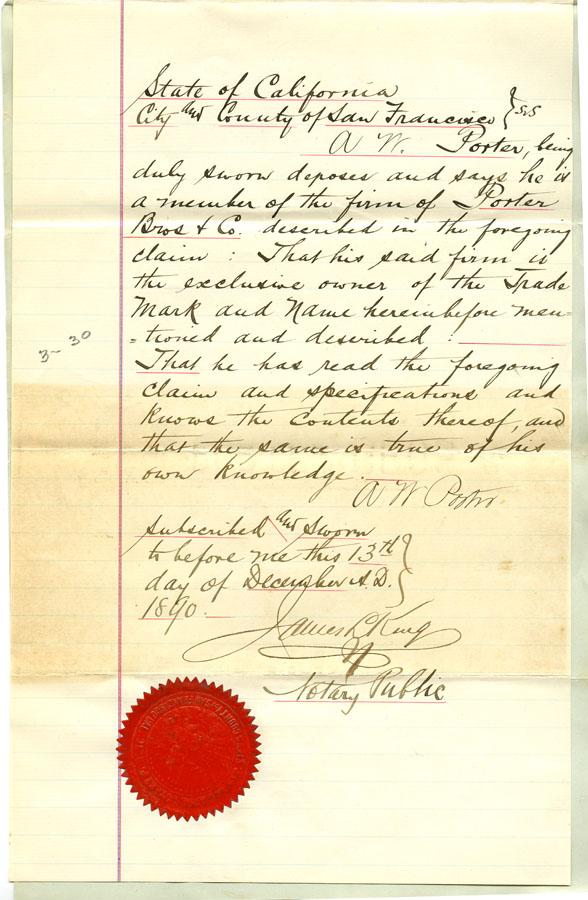 State of California
City and County of San Francisco } SS
A W. Porter, being
duly sworn deposes and says he is
a member of the firm of Porter
Bros & Co. described in the foregoing
claim : That his said firm is
the exclusive owner of the Trade
Mark and Name hereinbefore men-
-tioned and described :
That he has read the foregoing
claim and specifications and
knows the contents thereof, and
that the same is true of his
own knowledge.
A W Porter
Subscribed and Sworn
to before me this 13th
day of December A.D.
1890.
James L King
Notary Public
3- 30